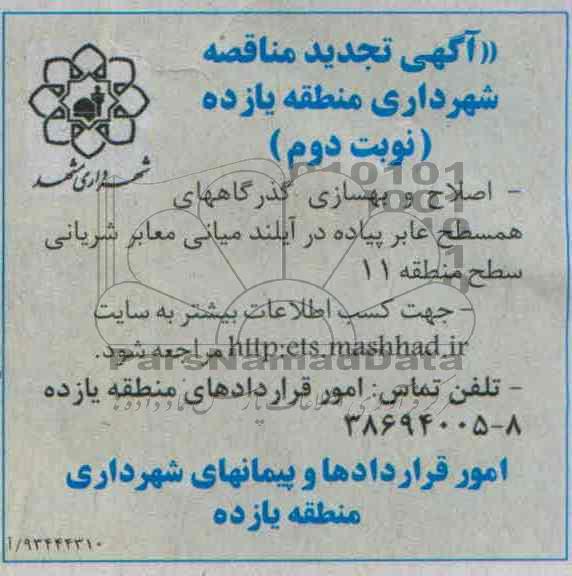 «آگهی تجدید مناقصه
شهرداری منطقه یازده
(نوبت دوم)
شهرداری مشهد
- اصلاح و بهسازی گذرگاههای
همسطح عابر پیاده در آیلند میانی معابر شریانی
سطح منطقه ۱۱
- جهت کسب اطلاعات بیشتر به سایت
http:ets.mashhad.ir مراجعه شود.
ParsNamadData
- تلفن تماس: امور قراردادهای منطقه یازده
۳۸۶۹۴۰۰۵-۸
امور قراردادها و پیمانهای شهرداری
منطقه یازده
۹۳۴۴۴۳۱۰/آ